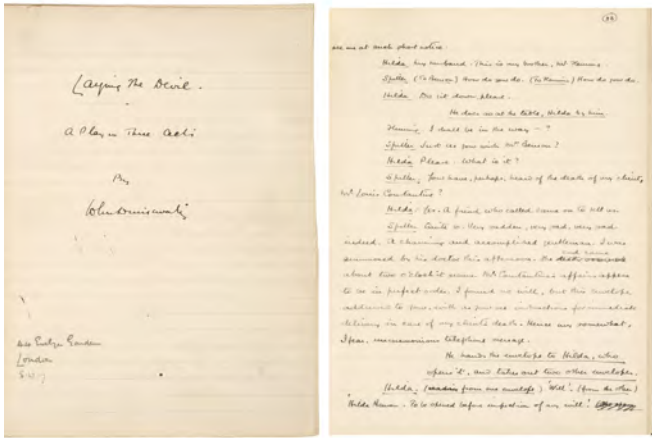 Laying The Devil.
A Play in Three Acts
By
John Drinkwater
Evelyn Gardens
London
S.W.7
see us at such short notice.
Hilda. My husband. This is my mother, Mrs
Spiller (To Benson) How do you do. (To Fleming) How do you do.
Hilda. Do sit down please.
He does so at the table, Hilda by him.
Fleming. I shall be in the way – ?
Spiller Just as you wish Mrs Benson?
Hilda Please. What is it?
Spiller. You have, perhaps, heard of the death of my client,
Mr Louis Constantine?
Hilda. Yes. A friend who called came on to tell us
Spiller Quite so. Very sudden, very sad, very sad
indeed. A charming and accomplished gentleman. I was
summoned by his doctor this afternoon. He
about two o'clock it seems Mr Constantine's affairs appear
to be in perfect order. I found no will, but this envelope
addressed to you, with us gave us instructions for immediate
delivery in case of my client's death. Hence my somewhat,
I fear, unceremonious telephone message.
He hands the envelope to Hilda, who
opens it, and takes out two other envelopes.
Hilda. (reading from one envelope) 'Will'. (from the other)
'Hilda Benson. To be opened before inspection of my will'.